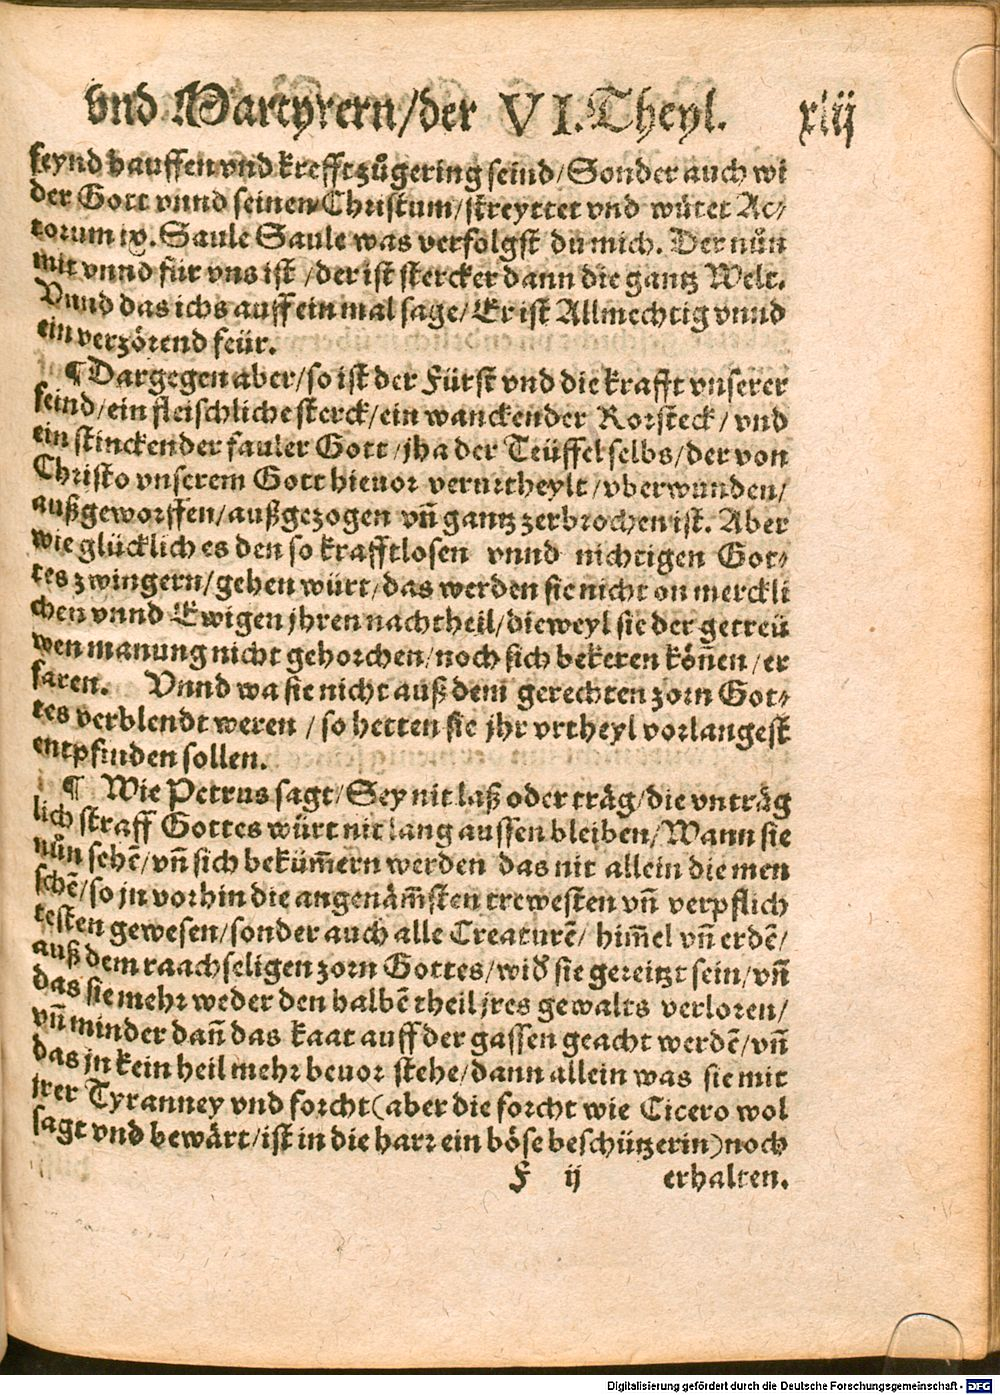 vnd Martyrern/der VI. Theyl. xlij
feynd hauffen vnd krefft zůgering seind/Sonder auch wi
der Gott vnnd seinen Christum/streyttet vnd wütet Ac⸗
torum ix. Saule Saule was verfolgst du mich. Der nůn
mit vnnd für vns ist /der ist stercker dann die gantz Welt.
Vnnd das ichs auff ein mal sage/Er ist Allmechtig vnnd
ein verzörend feür.
¶Dargegen aber/so ist der Fürst vnd die krafft vnserer
feind/ein fleischliche sterck/ein wanckender Rorsteck/vnd
ein stinckender fauler Gott/jha der Teüffel selbs/der von
Christo vnserem Gott hieuor verurtheylt/vberwunden/
außgeworffen/außgezogen vn̄ gantz zerbrochen ist. Aber
wie glücklich es den so krafftlosen vnnd nichtigen Got⸗
tes zwingern/gehen würt/das werden sie nicht on merckli
chen vnnd Ewigen jhren nachtheil/dieweyl sie der getreü
wen manung nicht gehorchen/noch sich bekeren kön̄en/er
faren. Vnnd wa sie nicht auß dem gerechten zorn Got⸗
tes verblendt weren /so hetten sie jhr vrtheyl vorlangest
entpfinden sollen.
¶ Wie Petrus sagt/Sey nit laß oder träg/die vnträg
lich straff Gottes würt nit lang aussen bleiben/Wann sie
nůn sehē/vn̄ sich beküm̄ern werden das nit allein die men
schē/so jn vorhin die angenäm̄sten trewesten vn̄ verpflich
testen gewesen/sonder auch alle Creaturē/him̄el vn̄ erdē/
auß dem raachseligen zorn Gottes/wiđ sie gereitzt sein/vn̄
das sie mehr weder den halbē theil jres gewalts verloren/
vn̄ minder dan̄ das kaat auff der gassen geacht werdē/vn̄
das jn kein heil mehr beuor stehe/dann allein was sie mit
jrer Tyranney vnd forcht(aber die forcht wie Cicero wol
sagt vnd bewärt/ist in die harr ein böse beschützerin)noch
F ij erhalten.
Digitalisierung gefördert durch die Deutsche Forschungsgemeinschaft - DFG